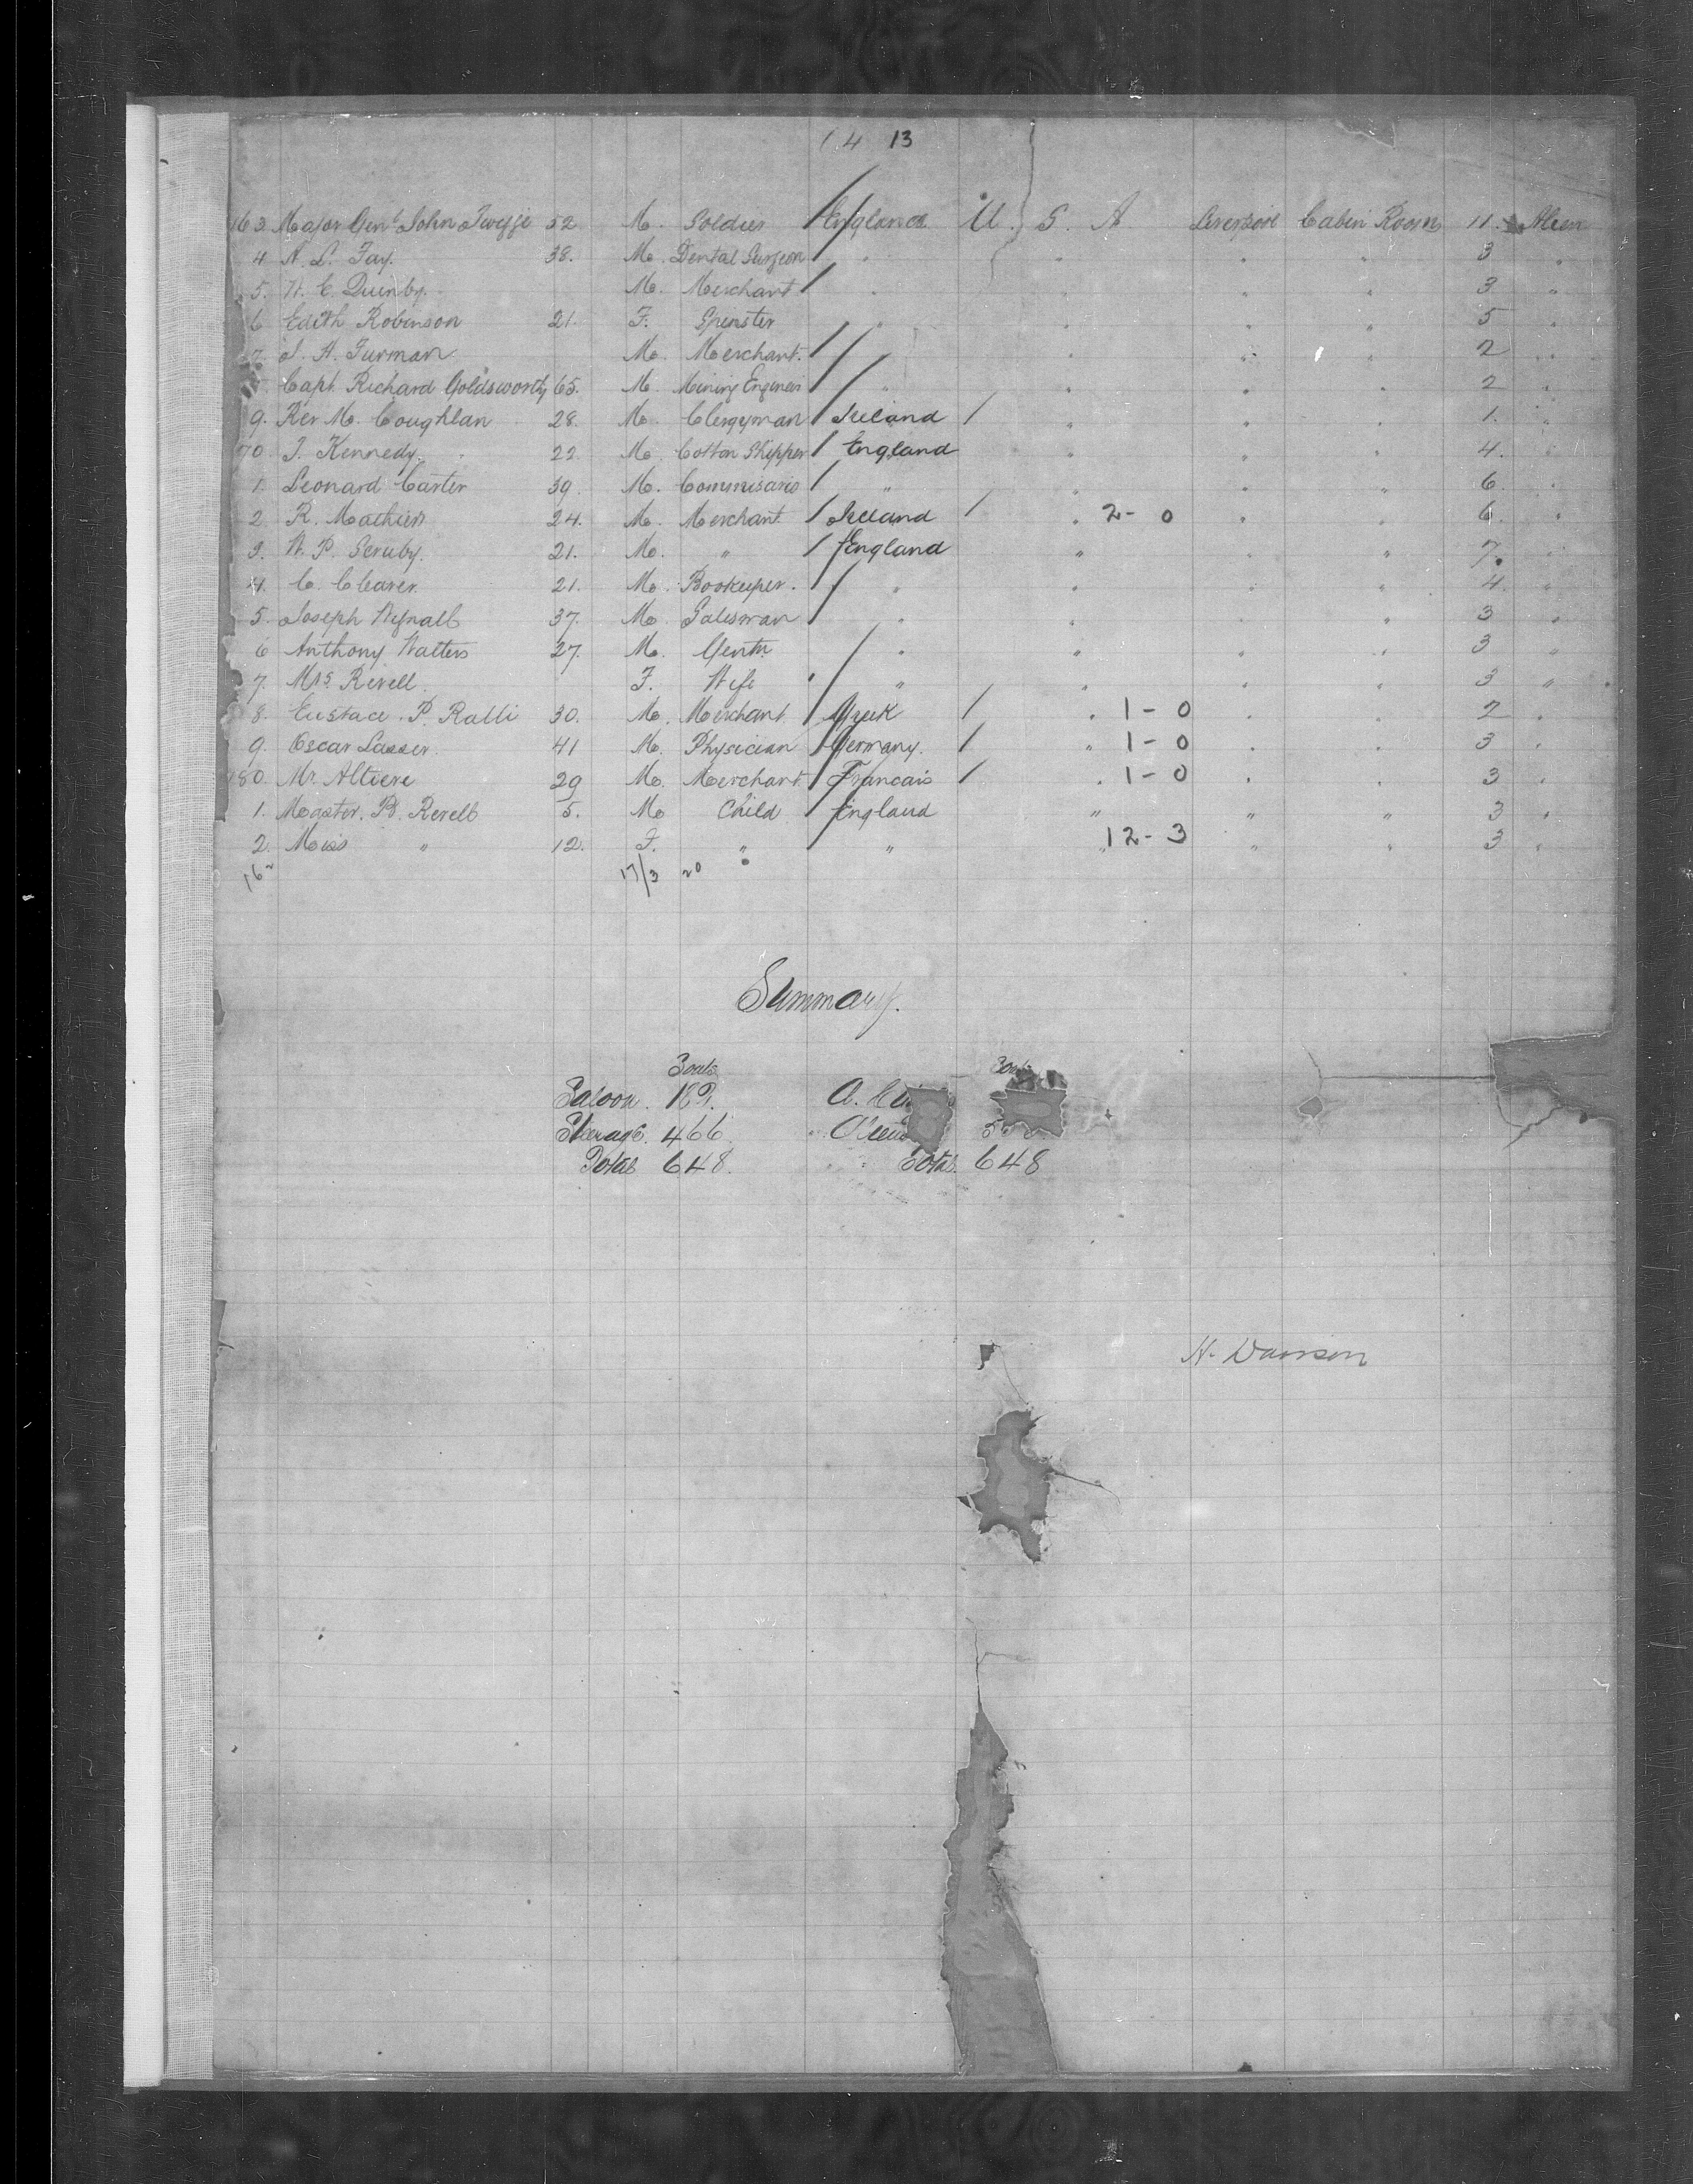 14 13
163. Major Genl John Twigge 52 M. Soldier England U. S. A. Liverpool Cabin Room 11. Alien
4 A. L. Fay. 38. M. Dental Surgeon " " " " 3 "
5. H. C. Quinby. M. Merchant " " " " 3 "
6 Edith Robinson 21. F. Spinster " " " " 5 "
7. S. H. Furman M. Merchant. " " " " 2 "
Capt. Richard Goldsworthy 65. M. Mining Engineer " " " " 2 "
9. Rev M. Coughlan 28. M. Clergyman Ireland " " " 1. "
70. J. Kennedy. 22 M. Cotton Shipper England " " " 4. "
1. Leonard Carter 39. M. Commisario " " " " 6. "
2. R. Mathieu 24. M. Merchant. Ireland " 2-0 " " 6. "
3. W. P. Scruby. 21. M. " England " " " 7. "
4. C. Claver. 21. M. Bookeeper. " " " " 4. "
5. Joseph Wignall 37. M. Salesman " " " " 3 "
6 Anthony Walters 27. M. Gentn. " " " " 3 "
7. Mrs. Revell. F. Wife " " " " 3 "
8. Eustace. P. Ralli 30. M. Merchant Greek " 1-0 " " 2 "
9. Oscar Lasser. 41 M. Physician Germany. " 1-0 " " 3 "
180. Mr. Altiere 29 M. Merchant Francais " 1-0 " " 3 "
1. Master. B. Revell 5. M Child England " " " 3 "
2. Miss " 12. F. " " " 12-3 " " 3 "
162 17/3 20
Summary.
Souls
Saloon. 182.
Steerage. 466. 
Total 648. Total. 648
H. Dawson